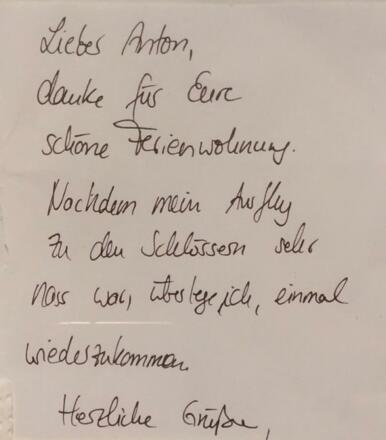 Lieber Anton,
danke für Eure
schöne Ferienwohnung.
Nachdem mein Ausflug
zu den Schlössern sehr
nass war, überlege ich, einmal
wiederzukommen.
Herzliche Grüße,